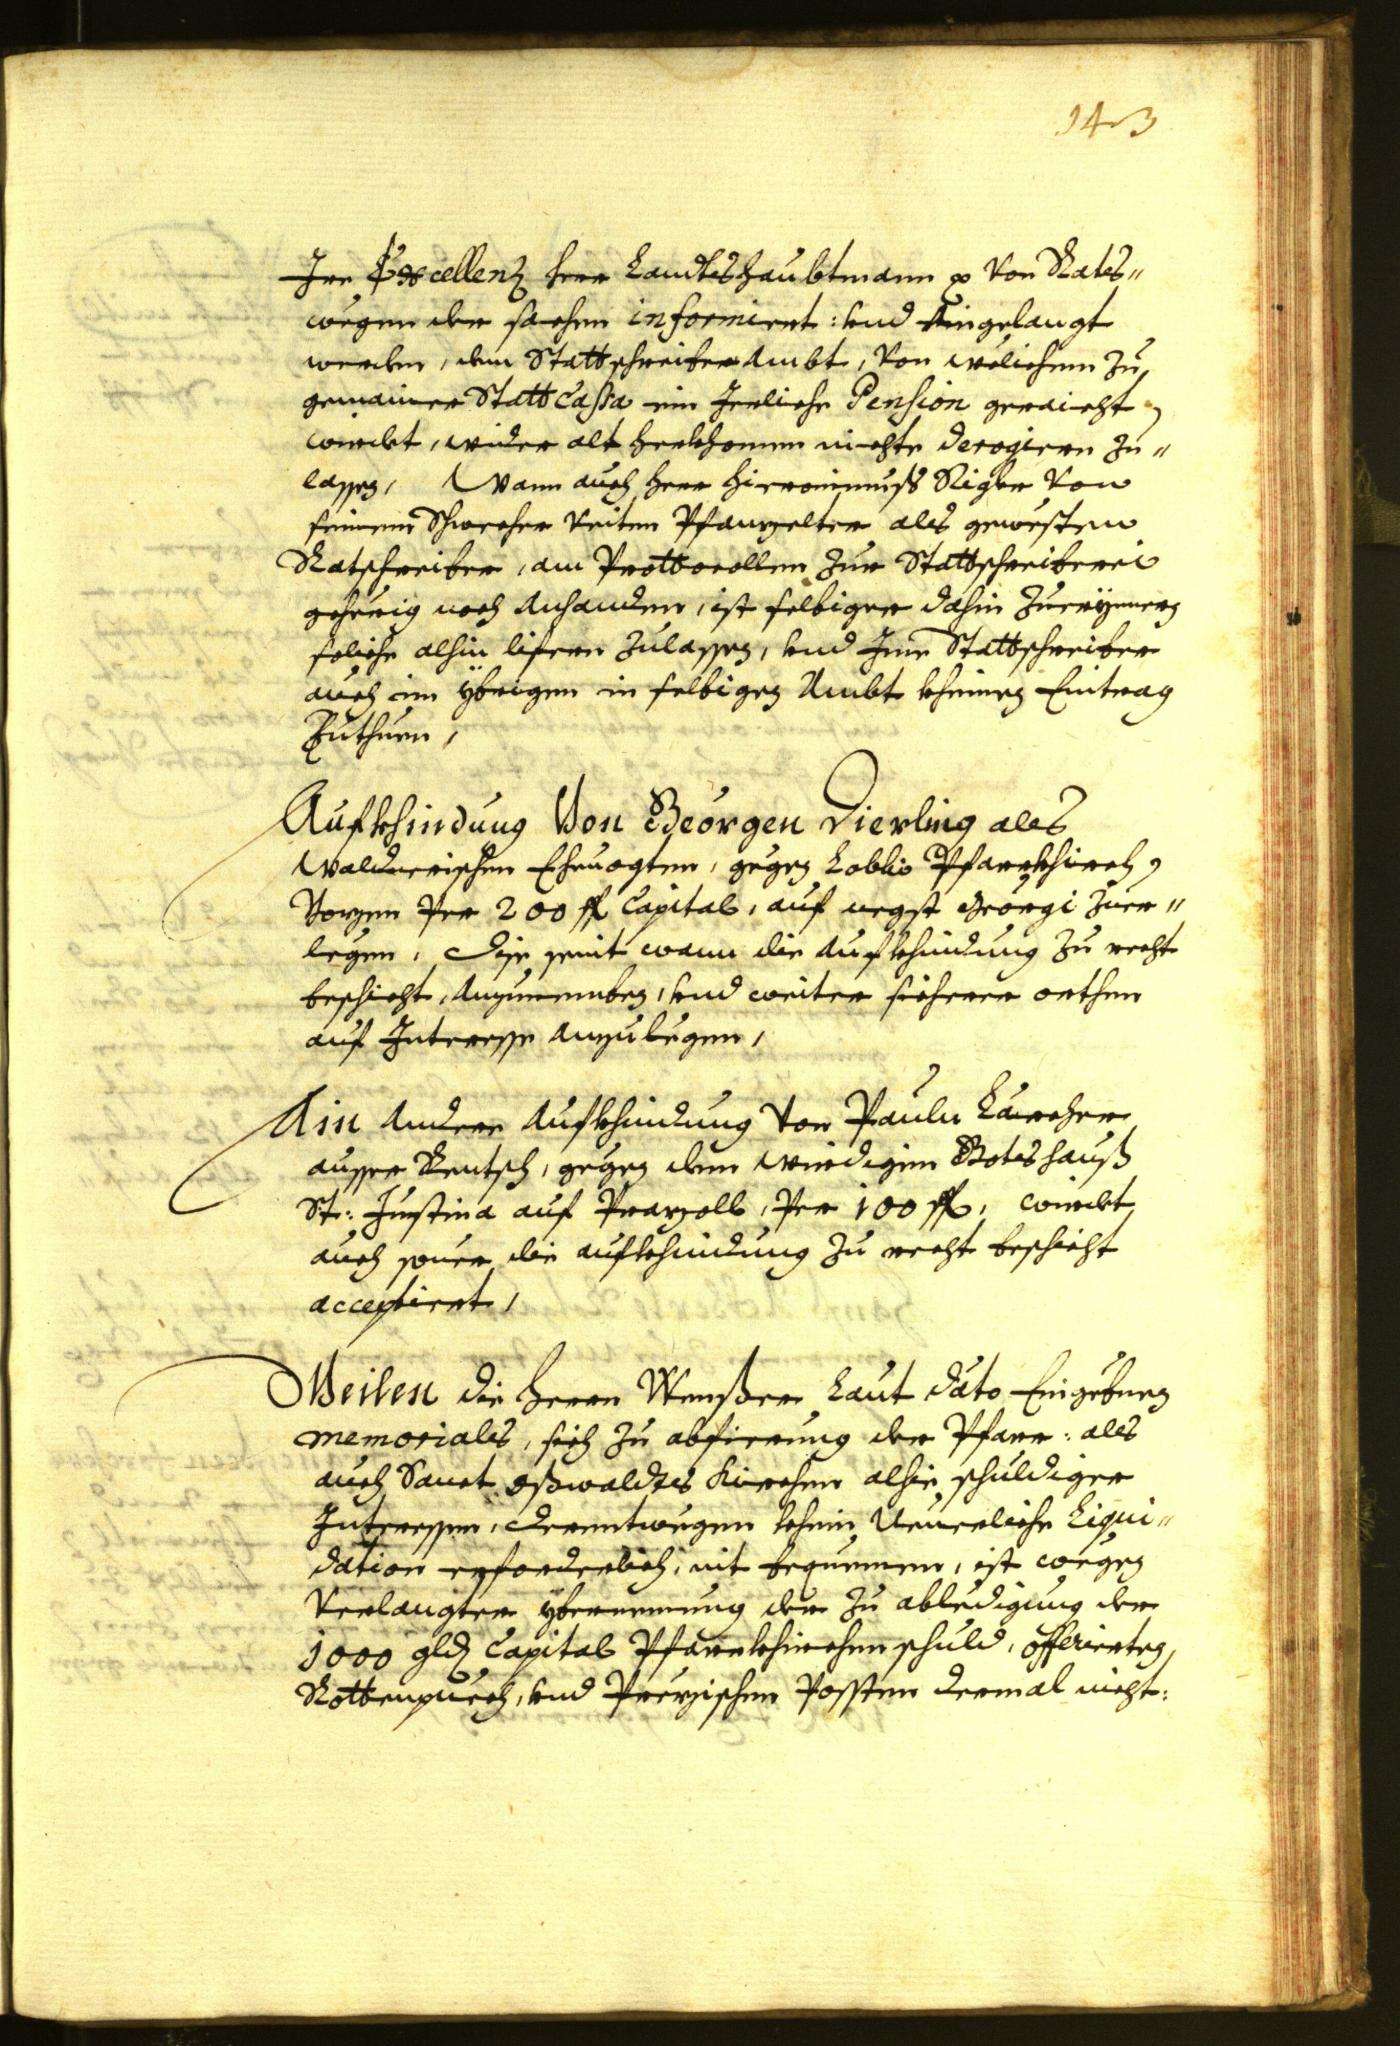 143
Irer Excellenz herr Landtshaubtmann p von Rats„
wegen der sachen informiert: und Angelangt
werden, dem Stattschreiber Ambt, von welichem zu
gemainer Statt Cassa ein Jerliche Pension geraicht
wirdet, wider alt herkhomen nichts derogiern zu„
lassen, Wann auch herr Hieronimuß Riger von
seinem Schwecher Veiten Pfanzelter als gewesten
Ratschreiber, an Prottocollen zur Stattschreiberei
gehörig noch Anhanden, ist selbiger dahin zuerinnern
soliche alhin lifern zulassen, und Ime Stattschreiber
auch im ybrigen in selbigen Ambt kheinen Eintrag
Zuthuen,
Aufkhindung Von Georgen Dierling als
Waldnerischen Ehevogten, gegen Lobl: Pfarrkhirch
Bozen Per 200 fl Capital, auf negst Georgi zuer„
legen, Dise seint wann die Aufkhindung zu recht
beschicht, Anzunemben, und weiter sicherer orthen
auf Interesse Anzulegen,
Ain Andere Aufkhindung von Pauln Larcher
ausser Rentsch, gegen dem Wirdigen Gotshauß
St: Justina auf Prazoll, Per 100 fl, wirdet
auch souer die aufkhindung zu recht beschicht
acceptiert,
Weilen die Herrn Wenßer Laut dato Eingebnen
memorials, sich zu abfierung der Pfarr: als
auch Sanct Oßwaldts Kirchen alhie schuldiger
Interessen, derentwegen khein Neuerliche Liqui„
dation erforderlich, nit bequemen, ist wegen
Verlangter ybernemung der zu abledigung der
1000 gld Capital Pfarrkhirchen schuld, offerierten
Rottenpuech, und Posten dermal nicht: